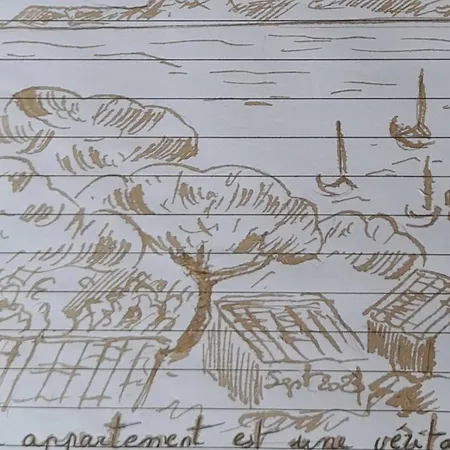 Sept 2023
appartement est une vérita